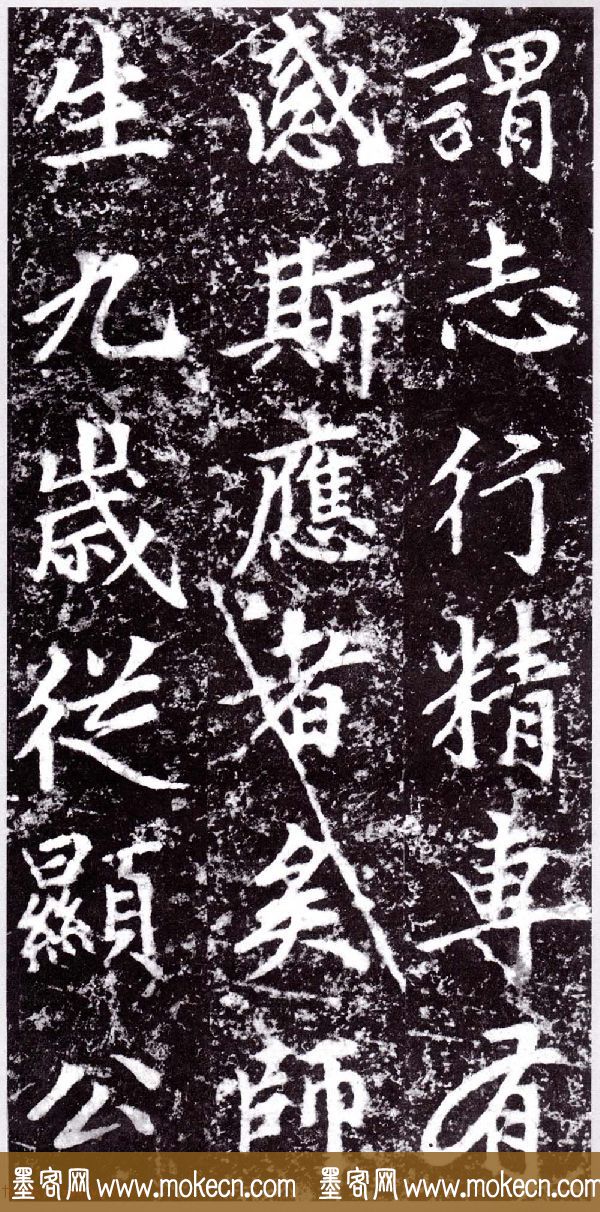 謂志行精專有
感斯應者矣師
生九歲從顯公
墨客网 www.mokecn.com 墨客网 www.mokecn.com